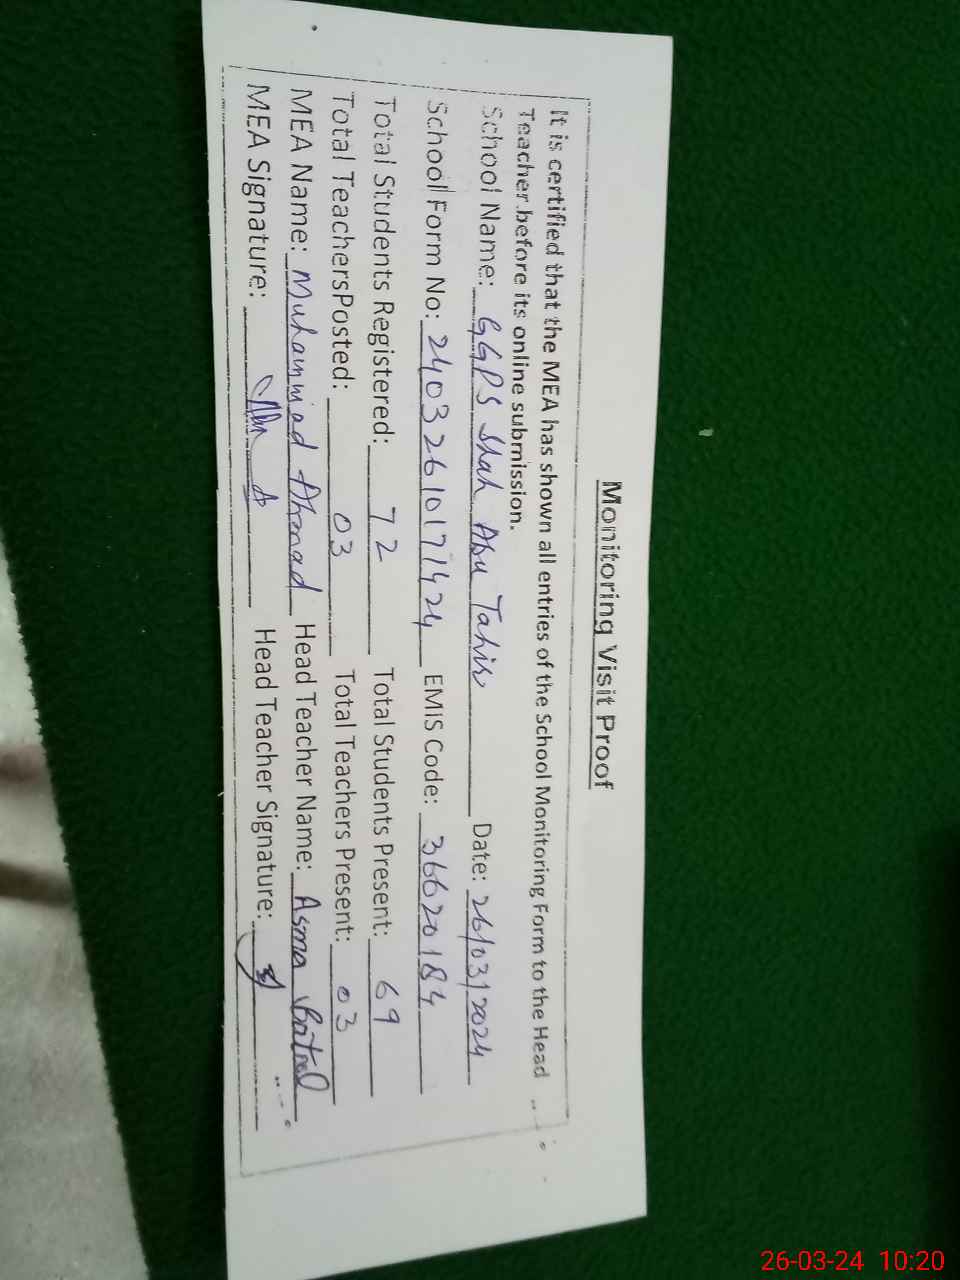 Monitoring Visit Proof
It is certified that the MEA has shown all entries of the School Monitoring Form to the Head
Teacher before its online submission.
School Name: GGPS Shah Abu Tahir Date: 26/03/2024
School Form No: 24032610171424 EMIS Code: 36620184
Total Students Registered: 72 Total Students Present: 69
Total TeachersPosted: 03 Total Teachers Present: 03
MEA Name: Muhammad Ahmad Head Teacher Name: Asma Batool
MEA Signature: Head Teacher Signature:
26-03-24 10:20